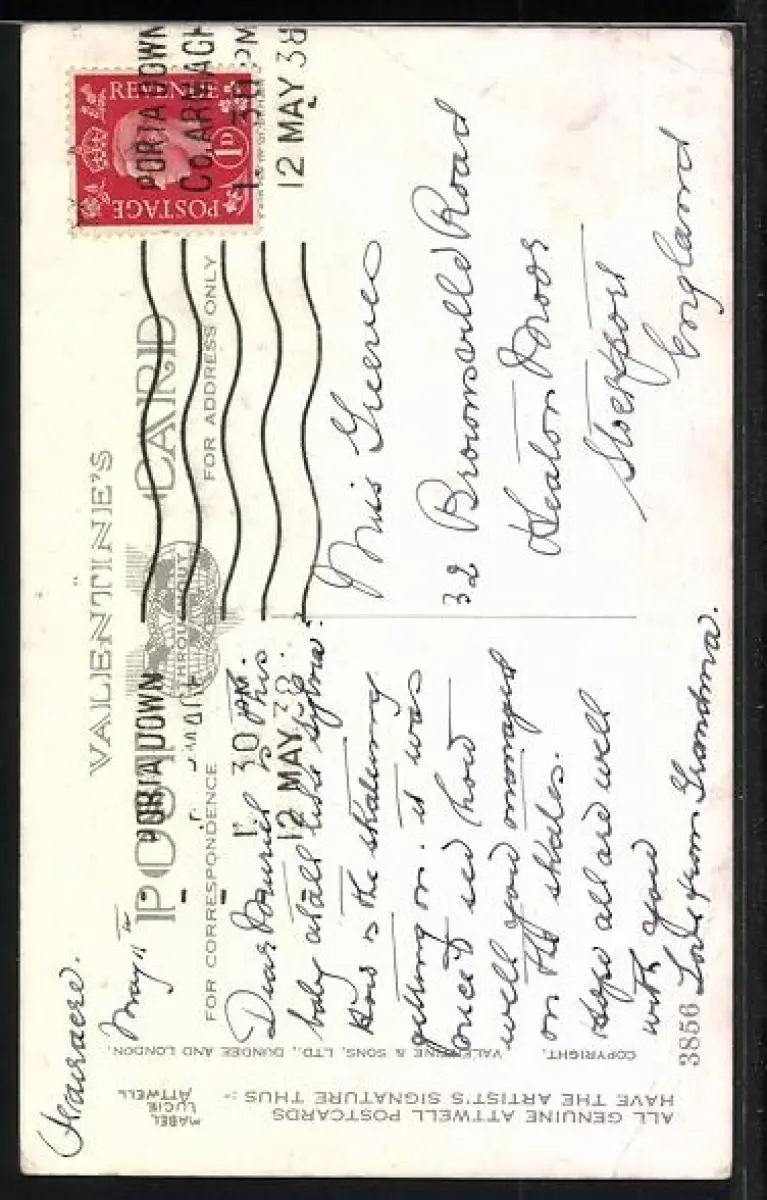 VALENTINE'S
POST CARD
THROUGHOUT
FOR CORRESPONDENCE
FOR ADDRESS ONLY
REVENUE
POSTAGE
1D
PORTADOWN
Co. ARMAGH
1. 30 PM
12 MAY 38
PORTADOWN
1. 30 PM
12 MAY 38
May 11th
Dear Muriel is this
baby at all like Sylvia?
How is the skating
getting on. it was
nice to see how
well you managed
on the skates.
Hope all are well
with you
Love from Grandma.
Miss Greeves
32 Brownsville Road
Heaton Moor
Stockport
England
COPYRIGHT. VALENTINE & SONS, LTD., DUNDEE AND LONDON.
3856
ALL GENUINE ATTWELL POSTCARDS
HAVE THE ARTIST'S SIGNATURE THUS :-
MABEL
LUCIE
ATTWELL